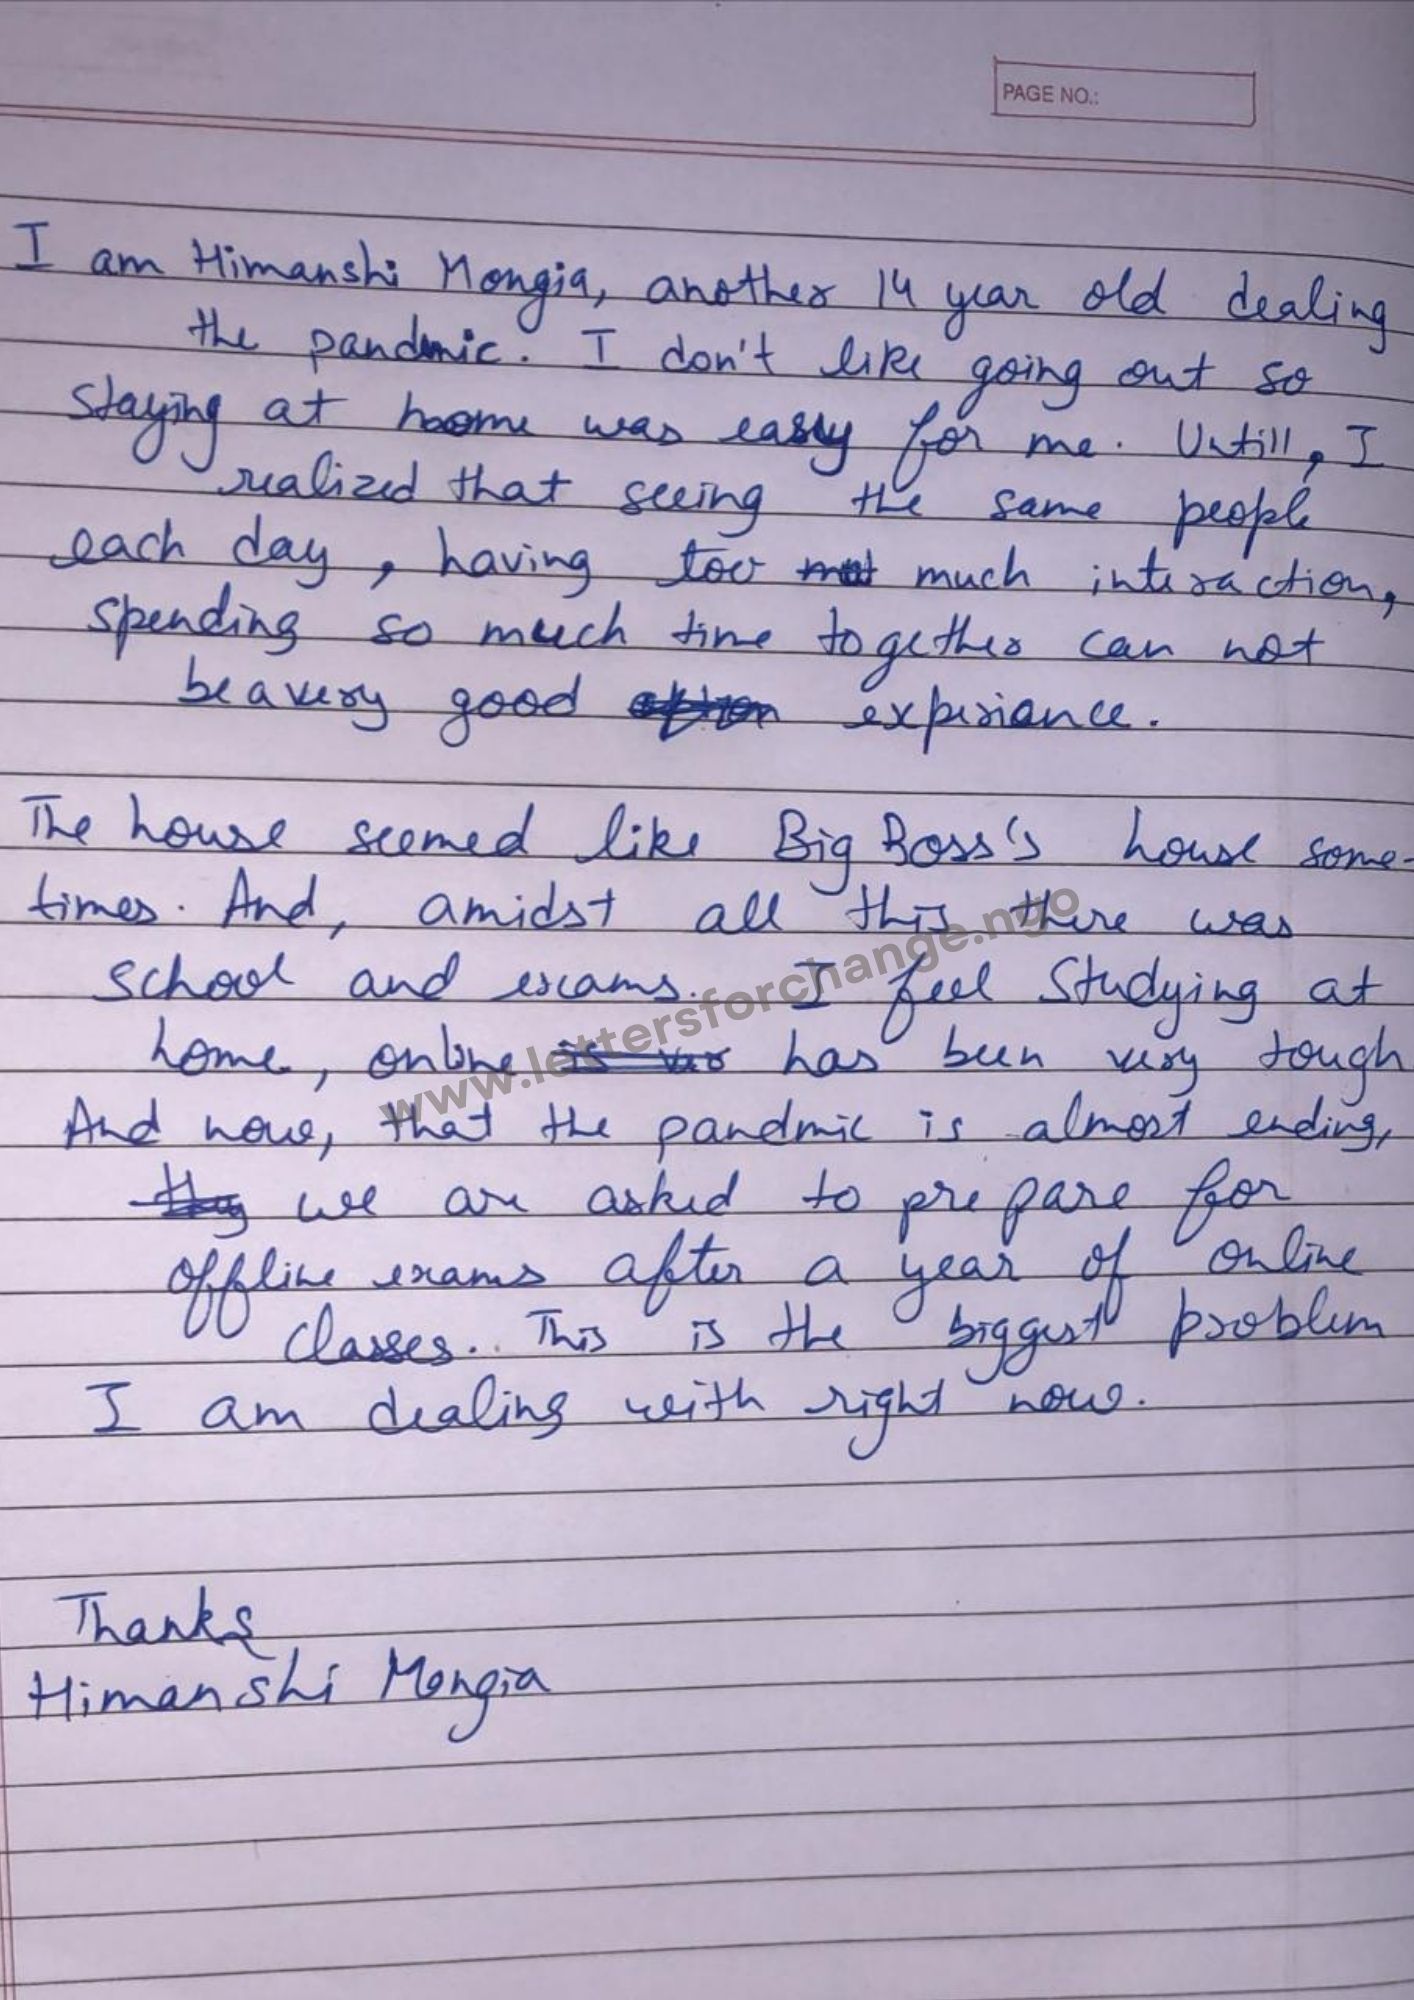 PAGE NO.:
I am Himanshi Mongia, another 14 year old dealing
the pandmic. I don't like going out so
staying at home was easy for me. Untill, I
realized that seeing the same people
each day, having too much interaction,
spending so much time together can not
be a very good expiriance.
The house seemed like Big Boss's house some-
times. And, amidst all this there was
school and exams. I feel Studying at
home, online has been very tough
And now, that the pandmic is almost ending,
we are asked to prepare for
offline exams after a year of online
classes. This is the biggest problem
I am dealing with right now.
Thanks
Himanshi Mongia
www.lettersforchange.ngo